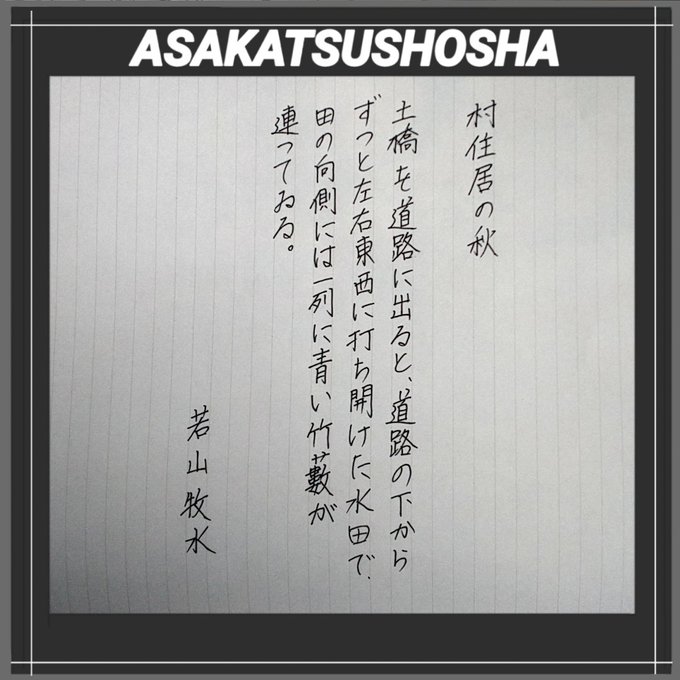 ASAKATSUSHOSHA
村住居の秋
土橋を道路に出ると、道路の下から
ずっと左右東西に打ち開けた水田で、
田の向側には一列に青い竹藪が
連ってゐる。
若山牧水